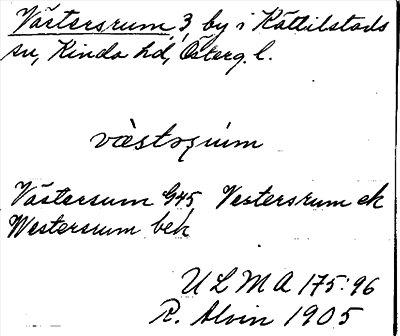 Västersrum, 3, by i Kättilstads
sn, Kinda hd, Österg. l.
Västersum G45 Vestersrum ek
Westersrum bek
ULMA 175:96
R. Alvin 1905